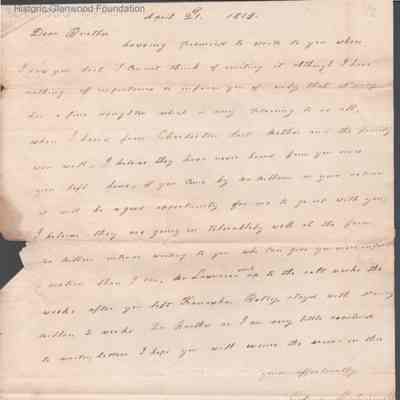 Historic Glenwood Foundation
April 29. 1818.
Dear Brother
having promised to write to you when
I saw you last I cannot think of omiting it although I have
nothing of importance to inform you of only that
has a fine daughter what is very pleasing to us all,
when I heard from Charleston last Mother and the family
were well, I believe they have never heard from you since
you left home, if you come by on your return
it will be a good opportunity for me to go out with you,
I believe they are going on tolerably well at the farm
intends writing to you who can give you more infor
mation than I can, Mr Lawrence went to the salt works the
weeks after you left Kanawha Betsy stayed with
2 weeks Dr Brother as I am very little
to writing letters I hope you will excuse the errors in this
yours affectionately